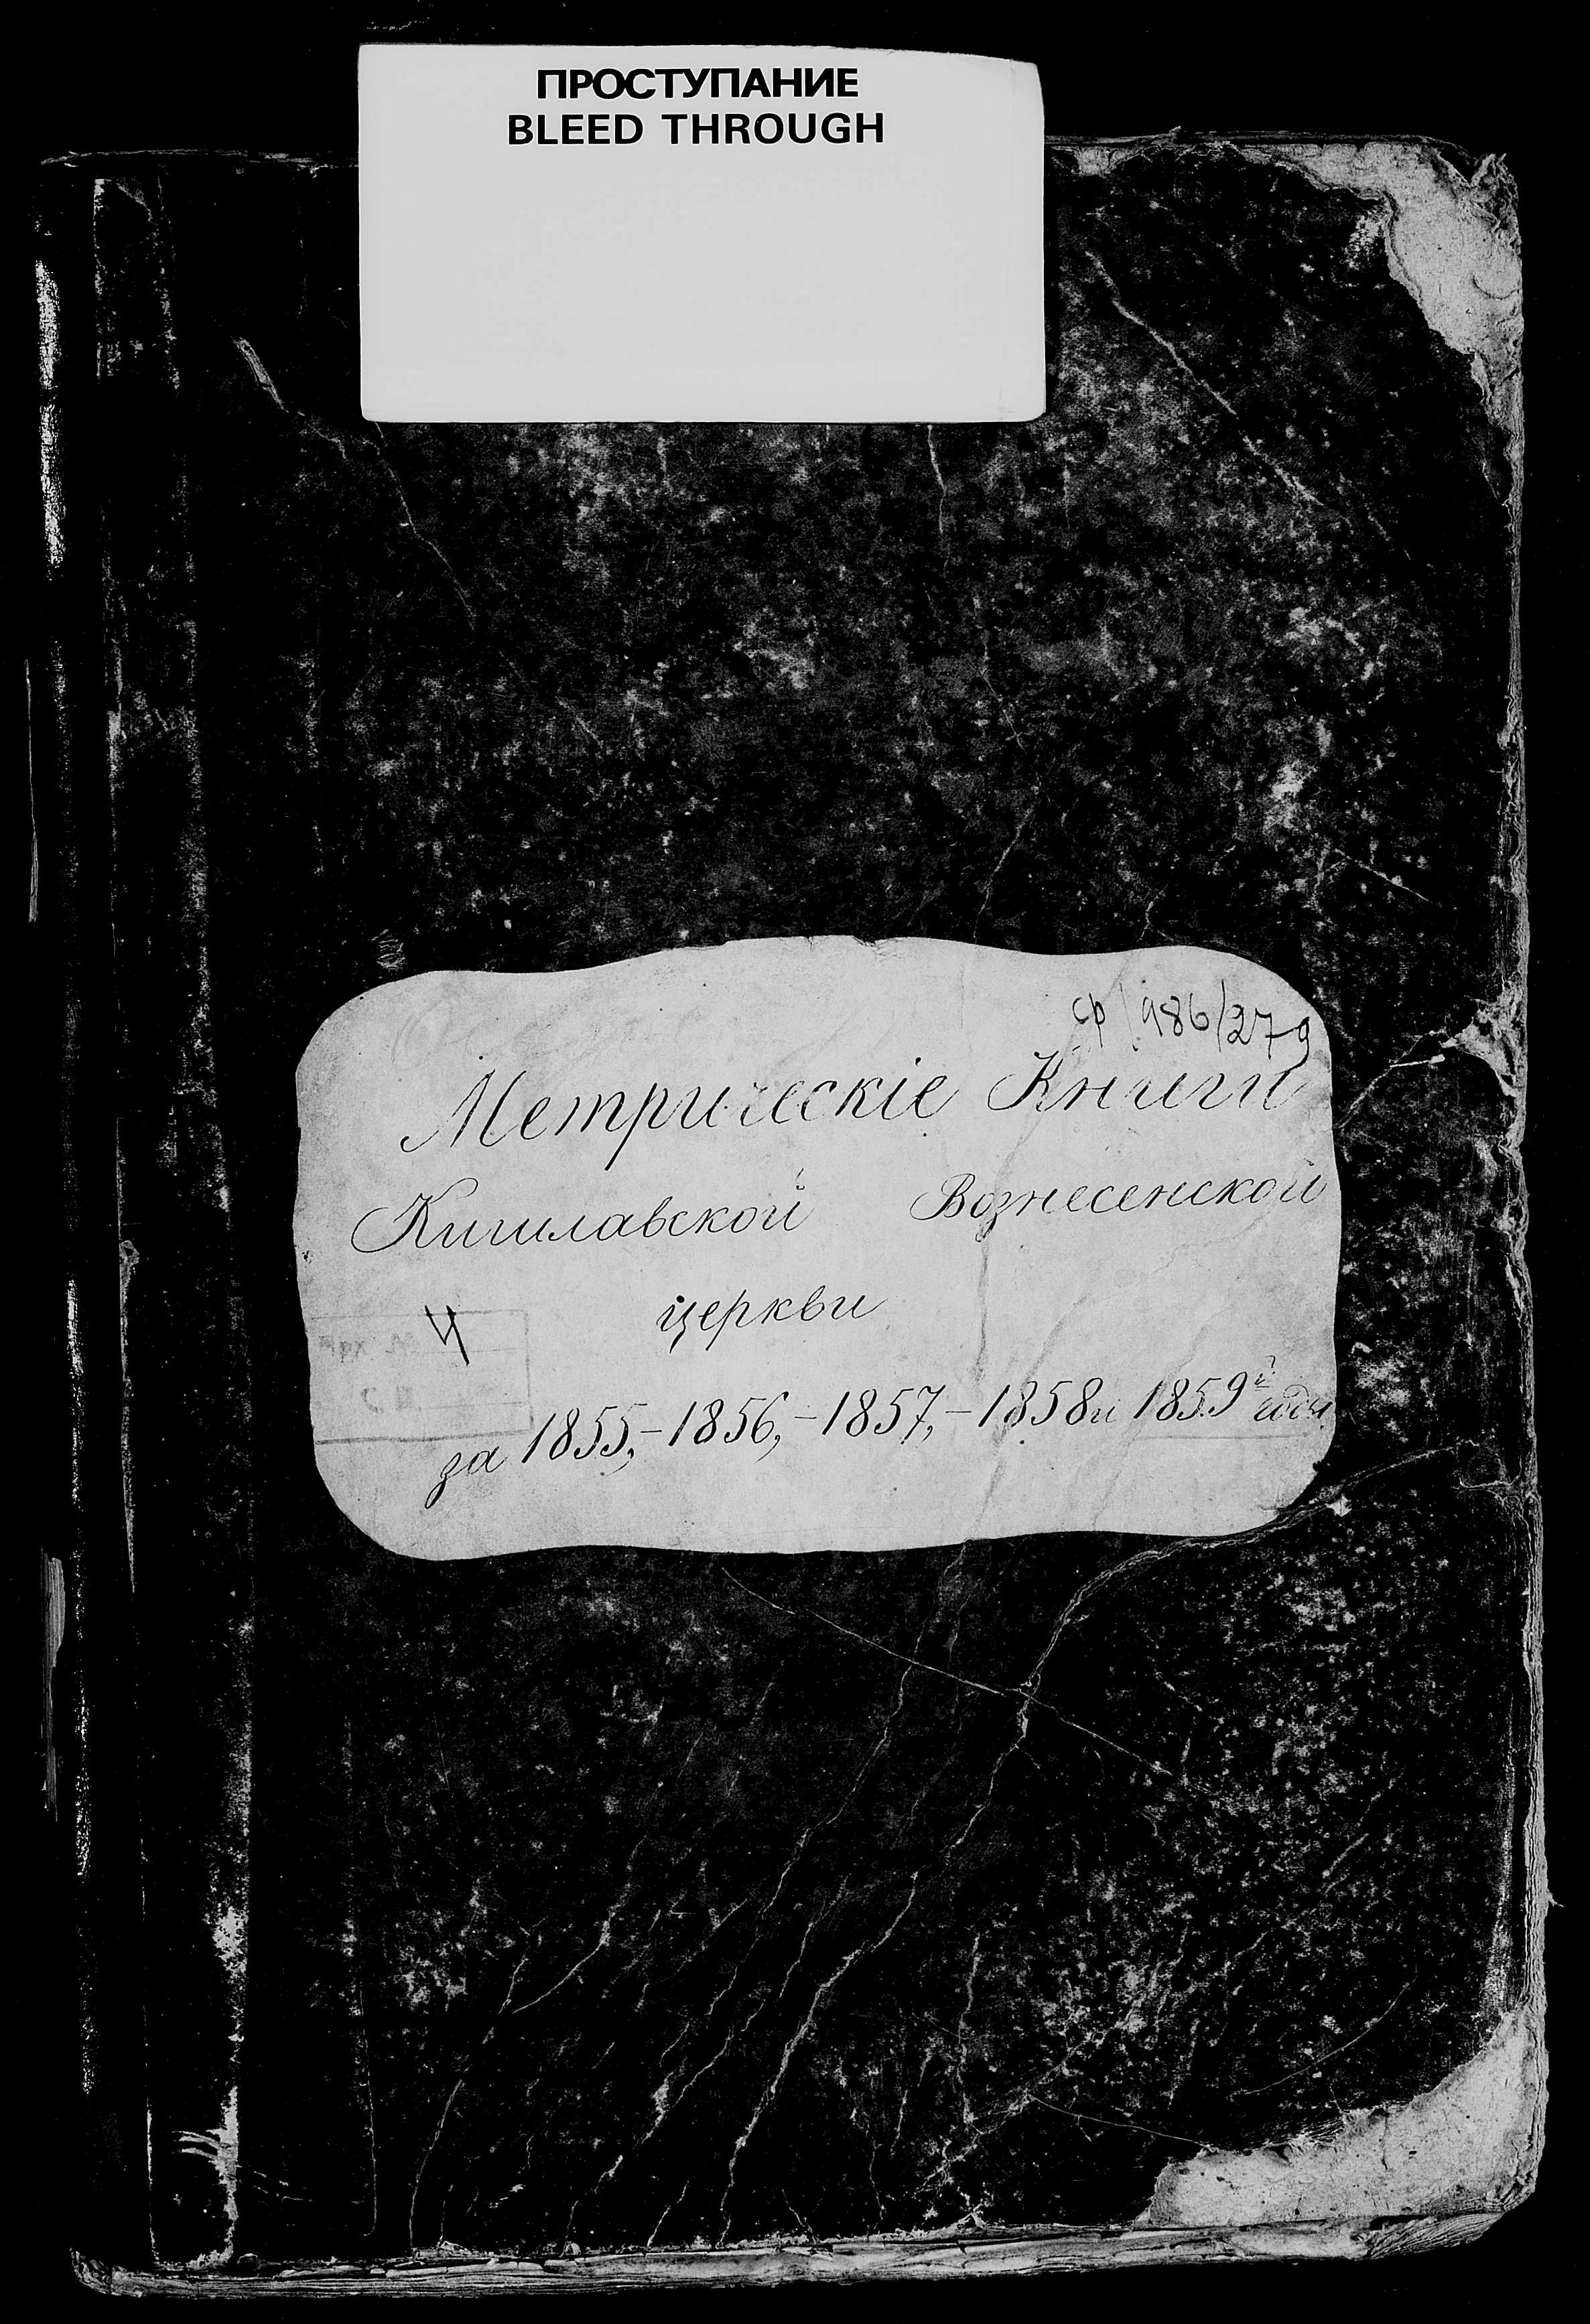 ПРОСТУПАНИЕ
BLEED THROUGH
ср 986/279
Метрическіе Книги
Кишлавской Вознесенской
церкви
Ч
за 1855,-1856,-1857,-1858 и 1859й годы.